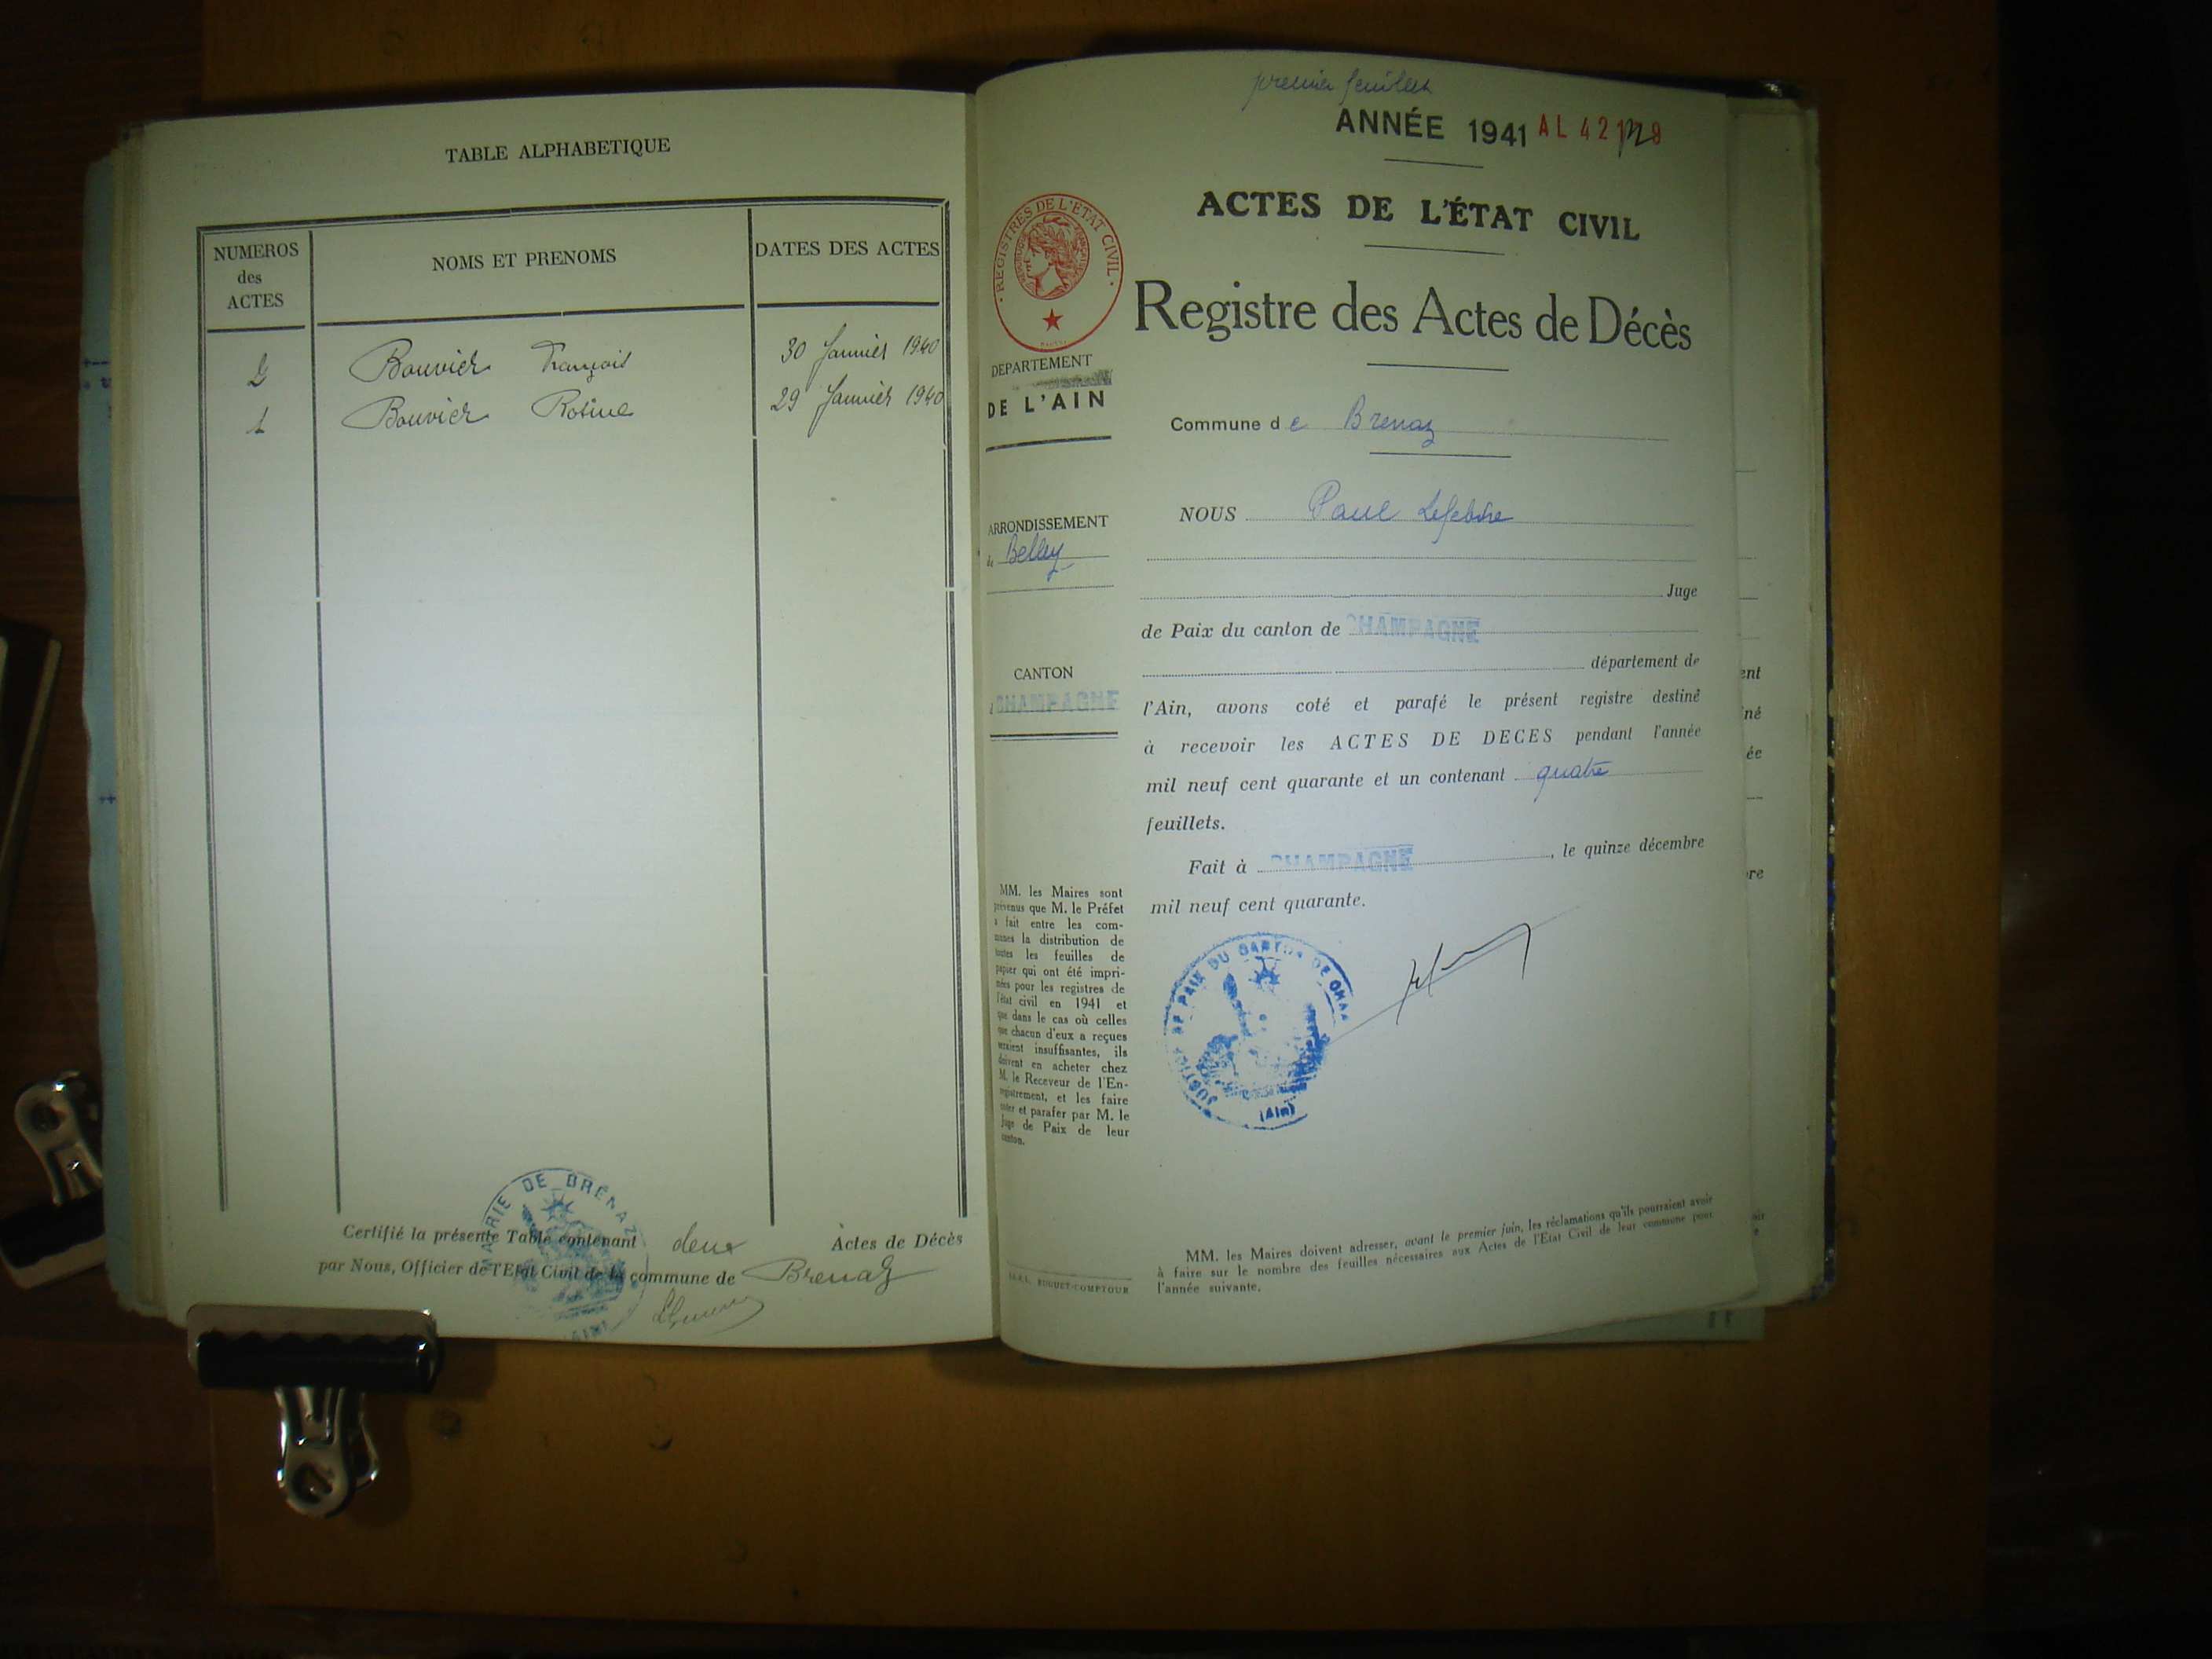 TABLE ALPHABETIQUE
NUMEROS
des
ACTES
NOMS ET PRENOMS
DATES DES ACTES
2 Bouvier François 30 Janvier 1940
1 Bouvier Rosine 29 Janvier 1940
MAIRIE DE BRÉNAZ
(AIN)
Certifié la présente Table contenant deux Actes de Décès
par Nous, Officier de l'Etat Civil de la commune de Brenaz
premier feuillet
ANNÉE 1941 AL 42
ACTES DE L'ÉTAT CIVIL
REGISTRES DE L'ÉTAT CIVIL
Registre des Actes de Décès
DEPARTEMENT
DE L'AIN
Commune de Brenaz
ARRONDISSEMENT
de Belley
NOUS Paul Lefebvre
Juge
de Paix du canton de CHAMPAGNE
département de
CANTON
CHAMPAGNE
l'Ain, avons coté et parafé le présent registre destiné
à recevoir les ACTES DE DECES pendant l'année
mil neuf cent quarante et un contenant quatre
feuillets.
Fait à CHAMPAGNE, le quinze décembre
mil neuf cent quarante.
MM. les Maires sont
prévenus que M. le Préfet
a fait entre les com-
munes la distribution de
toutes les feuilles de
papier qui ont été impri-
mées pour les registres de
l'état civil en 1941 et
que dans le cas où celles
que chacun d'eux a reçues
seraient insuffisantes, ils
doivent en acheter chez
M. le Receveur de l'En-
registrement, et les faire
coter et parafer par M. le
Juge de Paix de leur
canton.
JUSTICE DE PAIX DU CANTON DE CHAM
(Ain)
MM. les Maires doivent adresser, avant le premier juin, les réclamations qu'ils pourraient avoir
à faire sur le nombre des feuilles nécessaires aux Actes de l'Etat Civil de leur commune pour
l'année suivante.
BUGUET-COMPTOUR